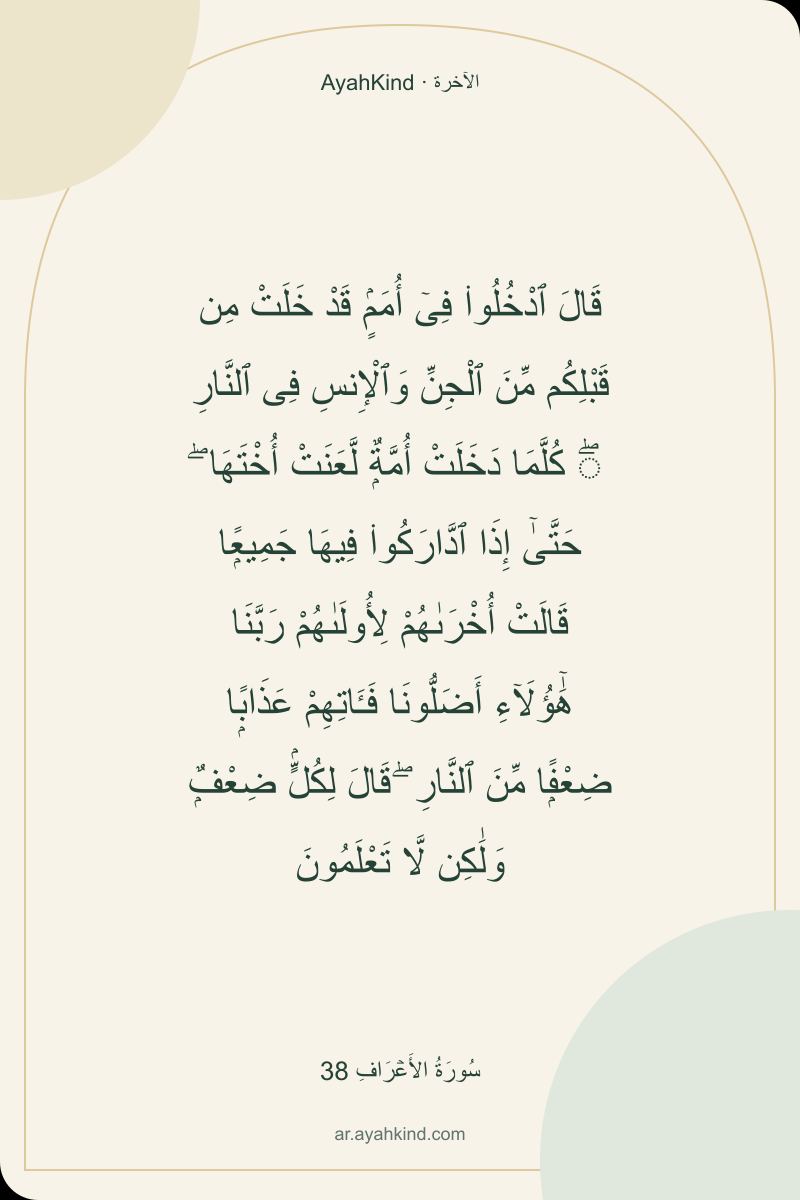 AyahKind · الآخرة
قَالَ ٱدْخُلُوا۟ فِىٓ أُمَمٍۢ قَدْ خَلَتْ مِن
قَبْلِكُم مِّنَ ٱلْجِنِّ وَٱلْإِنسِ فِى ٱلنَّارِ
ۖ كُلَّمَا دَخَلَتْ أُمَّةٌۭ لَّعَنَتْ أُخْتَهَا ۖ
حَتَّىٰٓ إِذَا ٱدَّارَكُوا۟ فِيهَا جَمِيعًۭا
قَالَتْ أُخْرَىٰهُمْ لِأُولَىٰهُمْ رَبَّنَا
هَٰٓؤُلَآءِ أَضَلُّونَا فَـَٔاتِهِمْ عَذَابًۭا
ضِعْفًۭا مِّنَ ٱلنَّارِ ۖ قَالَ لِكُلٍّۢ ضِعْفٌۭ
وَلَٰكِن لَّا تَعْلَمُونَ
سُورَةُ الأَعْرَافِ 38
ar.ayahkind.com